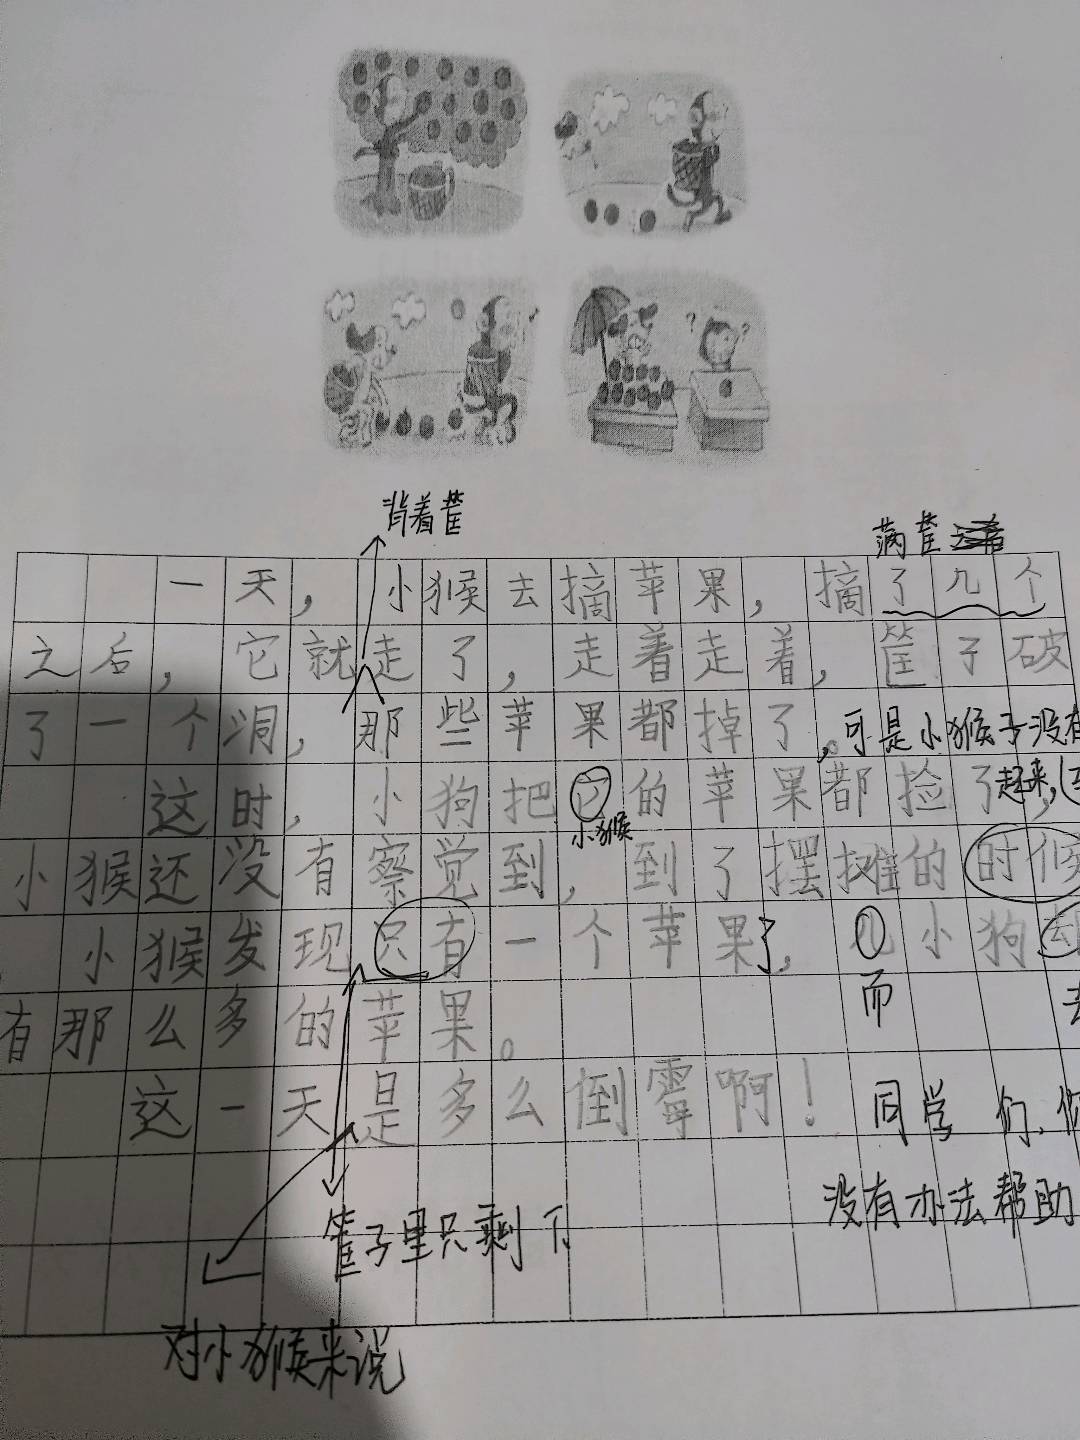 背着筐
满筐
一天，小猴去摘苹果，摘了几个
之后，它就走了，走着走着，筐子破
了一个洞，那些苹果都掉了。可是小猴子没有
这时，小狗把它的苹果都捡了起来，
小猴
小猴还没有察觉到，到了摆摊的时候
小猴发现只有一个苹果了，小狗
而
有那么多的苹果。
这一天是多么倒霉啊！同学们，你
没有办法帮助
筐子里只剩下
对小猴来说